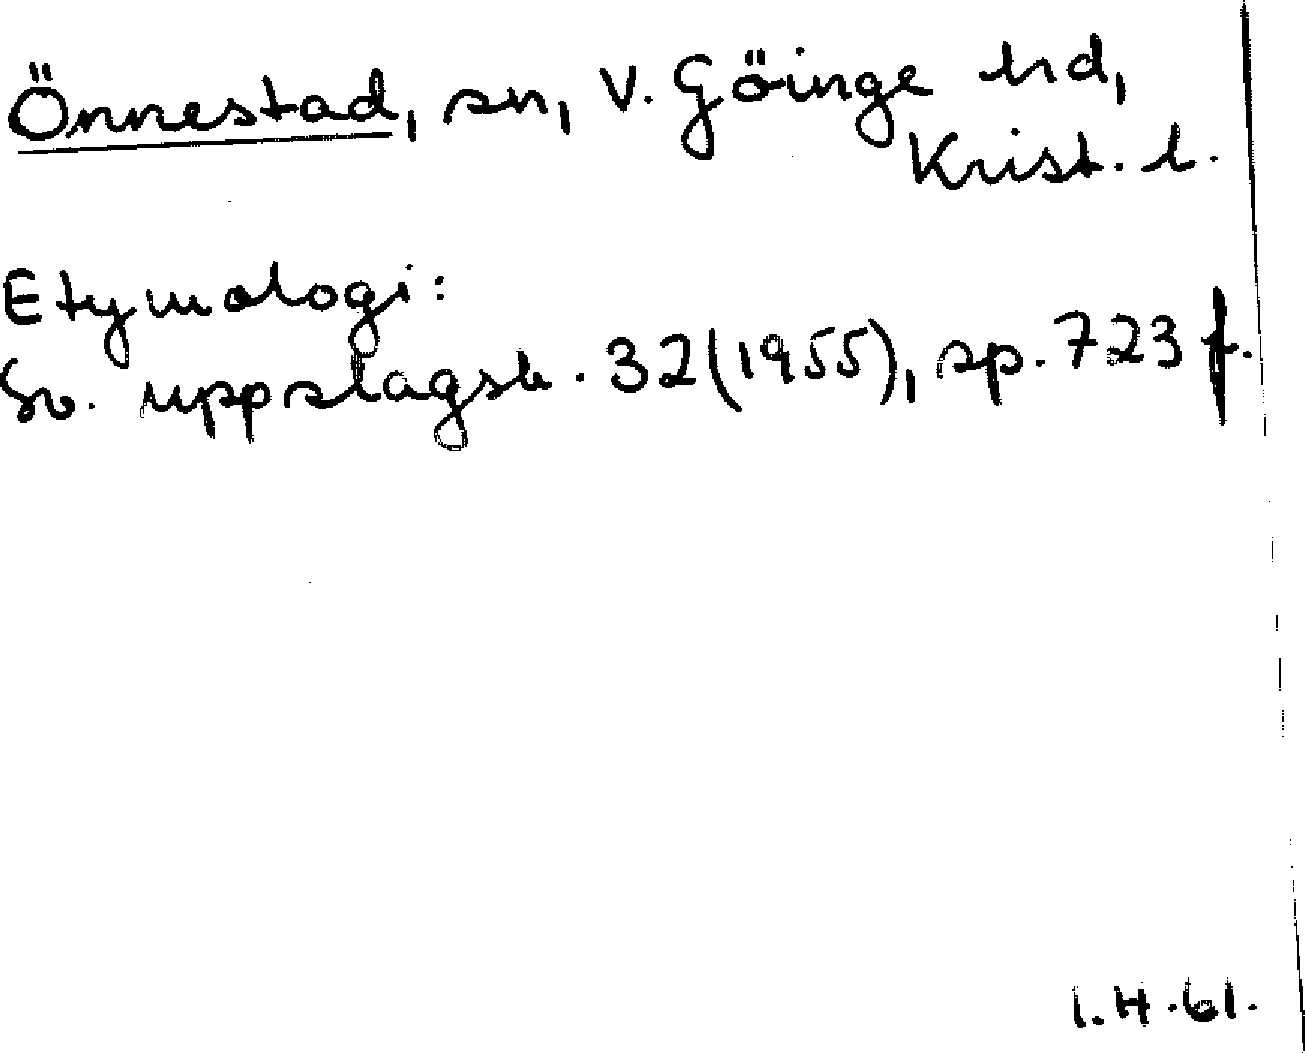 Önnestad, sn, V. Göinge hd,
Krist. l.
Etymologi:
Sv. uppslagsb. 32(1955), sp. 723 f.
I.H.61.